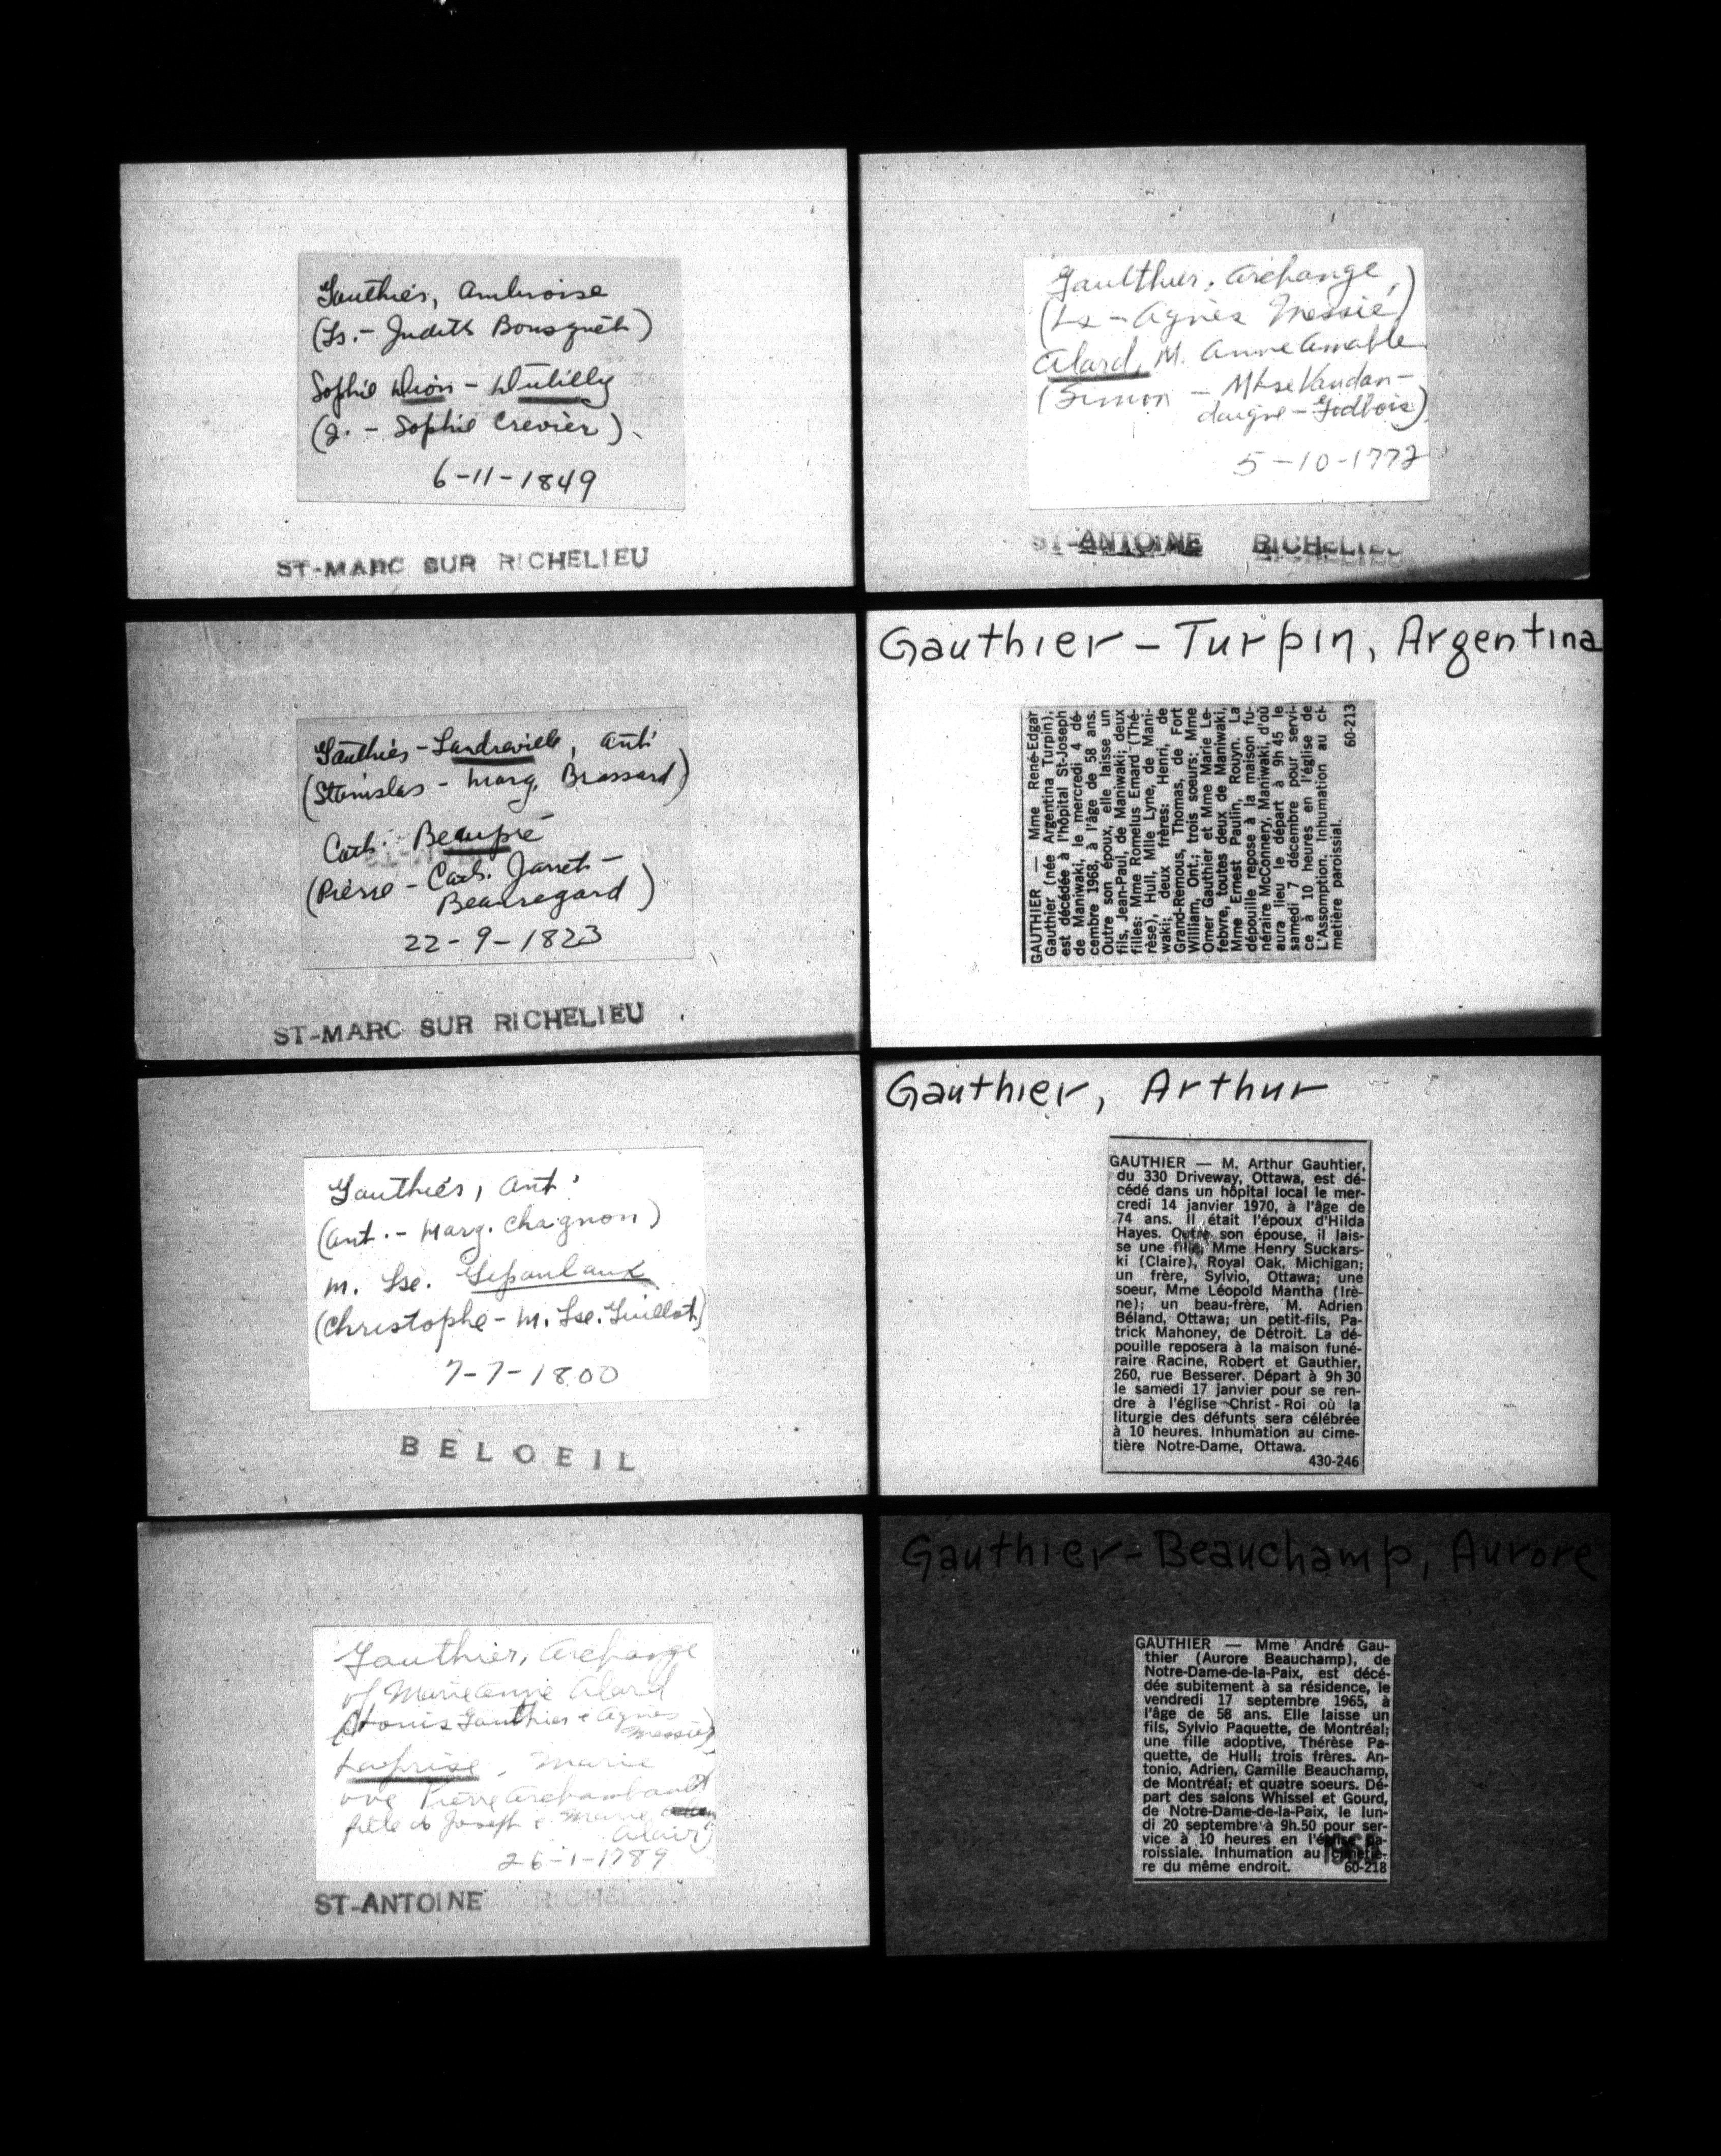 Gauthier, Ambroise
(Ls. - Judith Bousquet)
Sophie Dion - Dutilly
(J. - Sophie Crevier)
6-11-1849
ST-MARC SUR RICHELIEU
Gauthier-Landreville, Ant.
(Stanislas - Marg. Brossard)
Cath. Beaupré
(Pierre - Cath. Jarret-
Beauregard)
22-9-1823
ST-MARC SUR RICHELIEU
Gauthier, Ant.
(Ant. - Marg. Chagnon)
M. Lse.
(Christophe - M. Lse. Guillot)
7-7-1800
BELOEIL
Gauthier, Archange
vf Marie Anne Alard
(Louis Gauthier & Agnès
Messier)
Laprise, Marie
vve Pierre Archambault
fille de Joseph & Marie
Alair)
26-1-1789
ST-ANTOINE RICHELIEU
Gaulthier, Archange
(Ls - Agnès Messié)
Alard, M. Anne Amable
(Simon - Mtse Vandan-
daigne-Gadbois)
5-10-1772
ST-ANTOINE RICHELIEU
Gauthier-Turpin, Argentina
GAUTHIER — Mme René-Edgar
Gauthier (née Argentina Turpin),
est décédée à l'hôpital St-Joseph
de Maniwaki, le mercredi 4 dé-
cembre 1968, à l'âge de 58 ans.
Outre son époux, elle laisse un
fils, Jean-Paul, de Maniwaki; deux
filles: Mme Romelus Emard (Thé-
rèse), Hull, Mlle Lyne, de Mani-
waki; deux frères: Henri, de
Grand-Remous, Thomas, de Fort
William, Ont.; trois soeurs: Mme
Omer Gauthier et Mme Marie Le-
febvre, toutes deux de Maniwaki,
Mme Ernest Paulin, Rouyn. La
dépouille repose à la maison fu-
néraire McConnery, Maniwaki, d'où
aura lieu le départ à 9h 45 le
samedi 7 décembre pour servi-
ce à 10 heures en l'église de
L'Assomption. Inhumation au ci-
metière paroissial.
60-213
Gauthier, Arthur
GAUTHIER — M. Arthur Gauhtier,
du 330 Driveway, Ottawa, est dé-
cédé dans un hôpital local le mer-
credi 14 janvier 1970, à l'âge de
74 ans. Il était l'époux d'Hilda
Hayes. Outre son épouse, il lais-
se une fille, Mme Henry Suckars-
ki (Claire), Royal Oak, Michigan;
un frère, Sylvio, Ottawa; une
soeur, Mme Léopold Mantha (Irè-
ne); un beau-frère, M. Adrien
Béland, Ottawa; un petit-fils, Pa-
trick Mahoney, de Détroit. La dé-
pouille reposera à la maison funé-
raire Racine, Robert et Gauthier,
260, rue Besserer. Départ à 9h 30
le samedi 17 janvier pour se ren-
dre à l'église Christ-Roi où la
liturgie des défunts sera célébrée
à 10 heures. Inhumation au cime-
tière Notre-Dame, Ottawa.
430-246
Gauthier-Beauchamp, Aurore
GAUTHIER — Mme André Gau-
thier (Aurore Beauchamp), de
Notre-Dame-de-la-Paix, est décé-
dée subitement à sa résidence, le
vendredi 17 septembre 1965, à
l'âge de 58 ans. Elle laisse un
fils, Sylvio Paquette, de Montréal;
une fille adoptive, Thérèse Pa-
quette, de Hull; trois frères. An-
tonio, Adrien, Camille Beauchamp,
de Montréal; et quatre soeurs. Dé-
part des salons Whissel et Gourd,
de Notre-Dame-de-la-Paix, le lun-
di 20 septembre à 9h.50 pour ser-
vice à 10 heures en l'église pa-
roissiale. Inhumation au cimetiè-
re du même endroit. 60-218